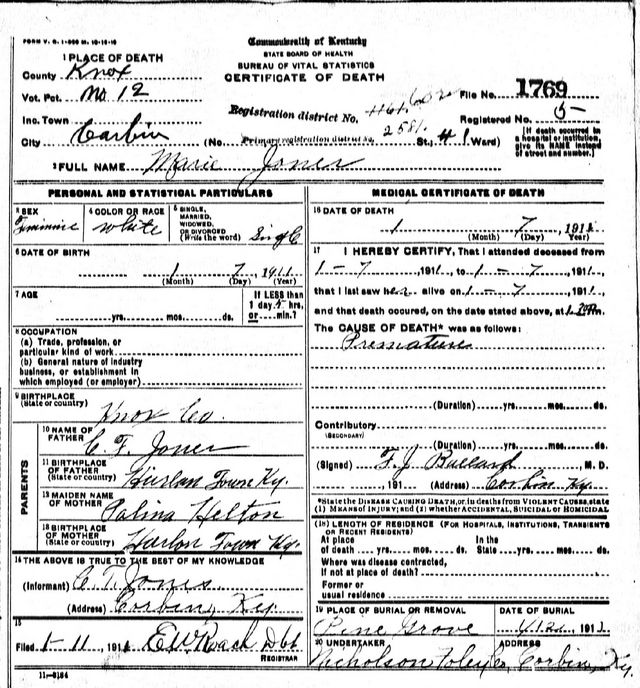 FORM V. S. 1-
Commonwealth of Kentucky
STATE BOARD OF HEALTH
BUREAU OF VITAL STATISTICS
CERTIFICATE OF DEATH
1 PLACE OF DEATH
County Knox
Vot. Pct. No 12
Inc. Town
City Corbin
Registration district No.
Primary registration district No. 2581
File No. 1769
Registered No. 5-
(No St.; Ward)
[If death occurred in a hospital or institution, give its NAME instead of street and number.]
2 FULL NAME Marie Jones
PERSONAL AND STATISTICAL PARTICULARS
3 SEX Feminine
4 COLOR OR RACE White
5 SINGLE, MARRIED, WIDOWED, OR DIVORCED (Write the word) Single
6 DATE OF BIRTH
1 7, 1911
(Month) (Day) (Year)
7 AGE
yrs. mos. ds.
If LESS than 1 day, hrs. or min.?
8 OCCUPATION
(a) Trade, profession, or
particular kind of work
(b) General nature of industry
business, or establishment in
which employed (or employer)
9 BIRTHPLACE
(State or country) Knox Co.
PARENTS
10 NAME OF FATHER C. T. Jones
11 BIRTHPLACE OF FATHER (State or country) Harlan Town Ky.
12 MAIDEN NAME OF MOTHER Salina Helton
13 BIRTHPLACE OF MOTHER (State or country) Harlan Town Ky.
14 THE ABOVE IS TRUE TO THE BEST OF MY KNOWLEDGE
(Informant) C. T. Jones
(Address) Corbin, Ky
15
Filed 1-11, 1911 E W Roach
REGISTRAR
11-3184
MEDICAL CERTIFICATE OF DEATH
16 DATE OF DEATH
1 7, 1911
(Month) (Day) (Year)
17 I HEREBY CERTIFY, That I attended deceased from
1-7, 1911, to 1-7, 1911,
that I last saw her alive on 1-7, 1911,
and that death occured, on the date stated above, at
The CAUSE OF DEATH* was as follows:
Premature
(Duration) yrs. mos. ds.
Contributory
(SECONDARY)
(Duration) yrs. mos. ds.
(Signed) F. J. Ballard M. D.
, 191 (Address) Corbin Ky.
*State the DISEASE CAUSING DEATH, or, in deaths from VIOLENT CAUSES, state
(1) MEANS OF INJURY; and (2) whether ACCIDENTAL, SUICIDAL or HOMICIDAL
(18) LENGTH OF RESIDENCE (FOR HOSPITALS, INSTITUTIONS, TRANSIENTS
OR RECENT RESIDENTS)
At place In the
of death yrs. mos. ds. State yrs. mos. ds.
Where was disease contracted,
if not at place of death?
Former or
usual residence
19 PLACE OF BURIAL OR REMOVAL Pine Grove
DATE OF BURIAL
20 UNDERTAKER Nicholson
ADDRESS Corbin, Ky.